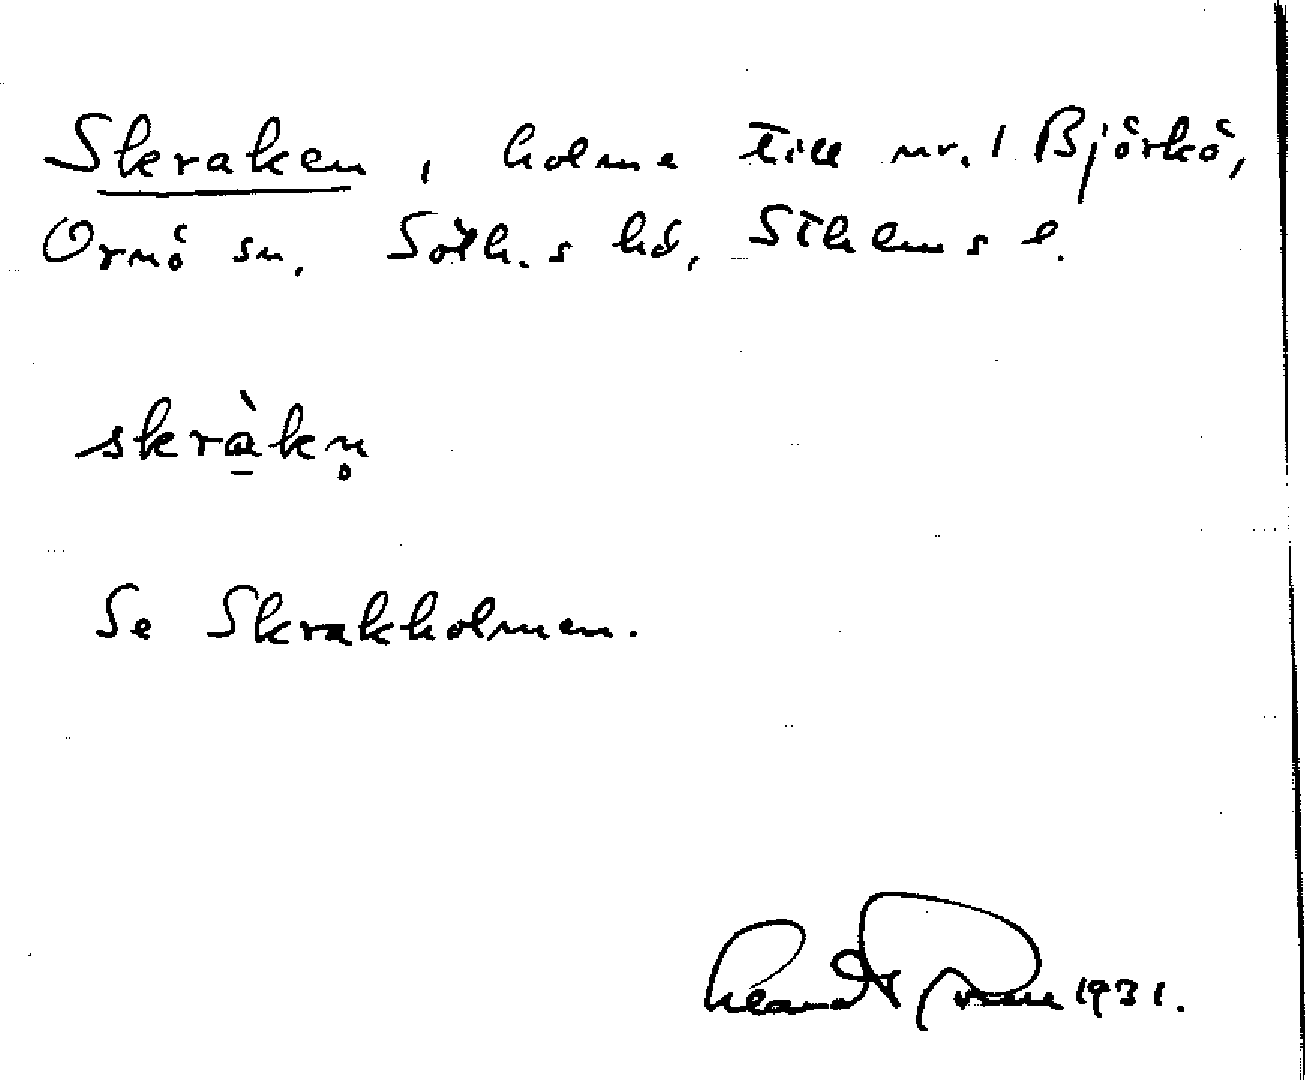 Skraken, holme till nr. 1 Björkö,
Ornö sn. Soth.s hd, Sthlms l.
skrà̱kn̥
Se Skrakholmen.
1931.